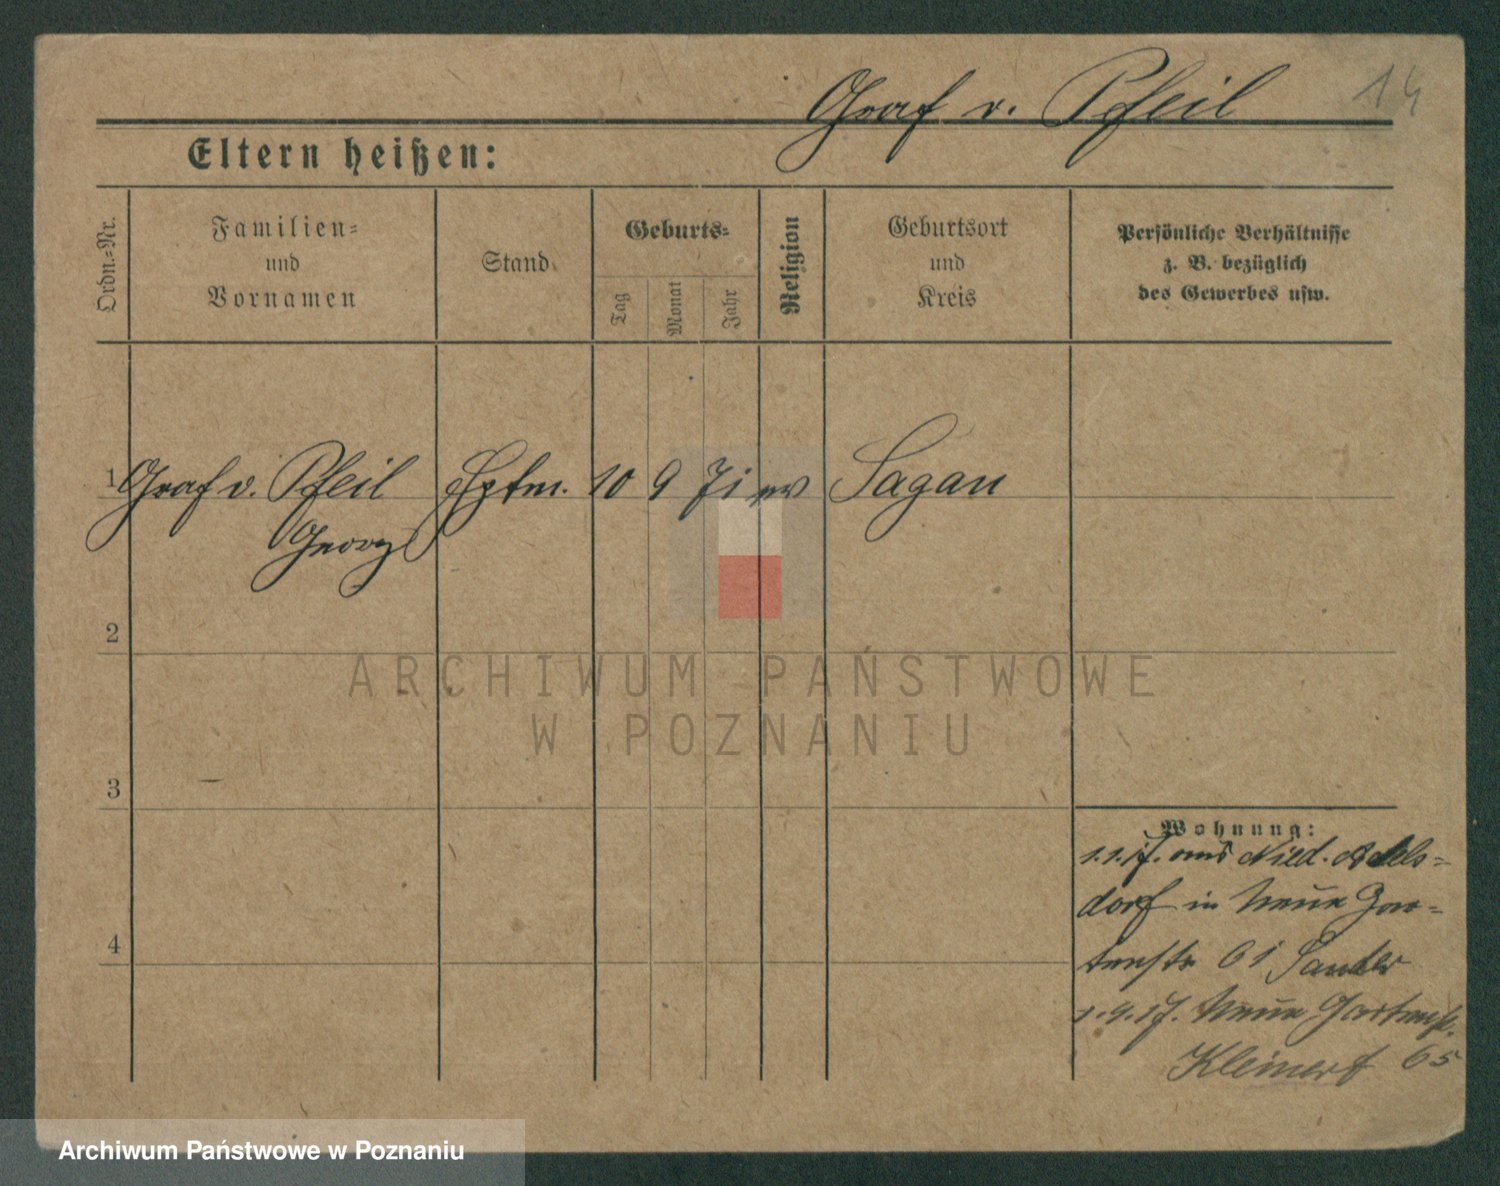 Graf v. Pfeil 14
Eltern heißen:
Ordn.-Nr.
Familien-
und
Vornamen
Stand
Geburts-
Tag
Monat
Jahr
Religion
Geburtsort
und
Kreis
Persönliche Verhältnisse
z. B. bezüglich
des Gewerbes usw.
1 Graf v. Pfeil Hptm. 10 9 71 ev Sagan
Georg
2
ARCHIWUM PAŃSTWOWE
W POZNANIU
3
Wohnung:
1.1.17. aus Nied. Adels-
dorf in Neue Gar-
tenstr 61 Sauder
1.9.17. Neue Gartenstr.
Kleinert 65
4
Archiwum Państwowe w Poznaniu